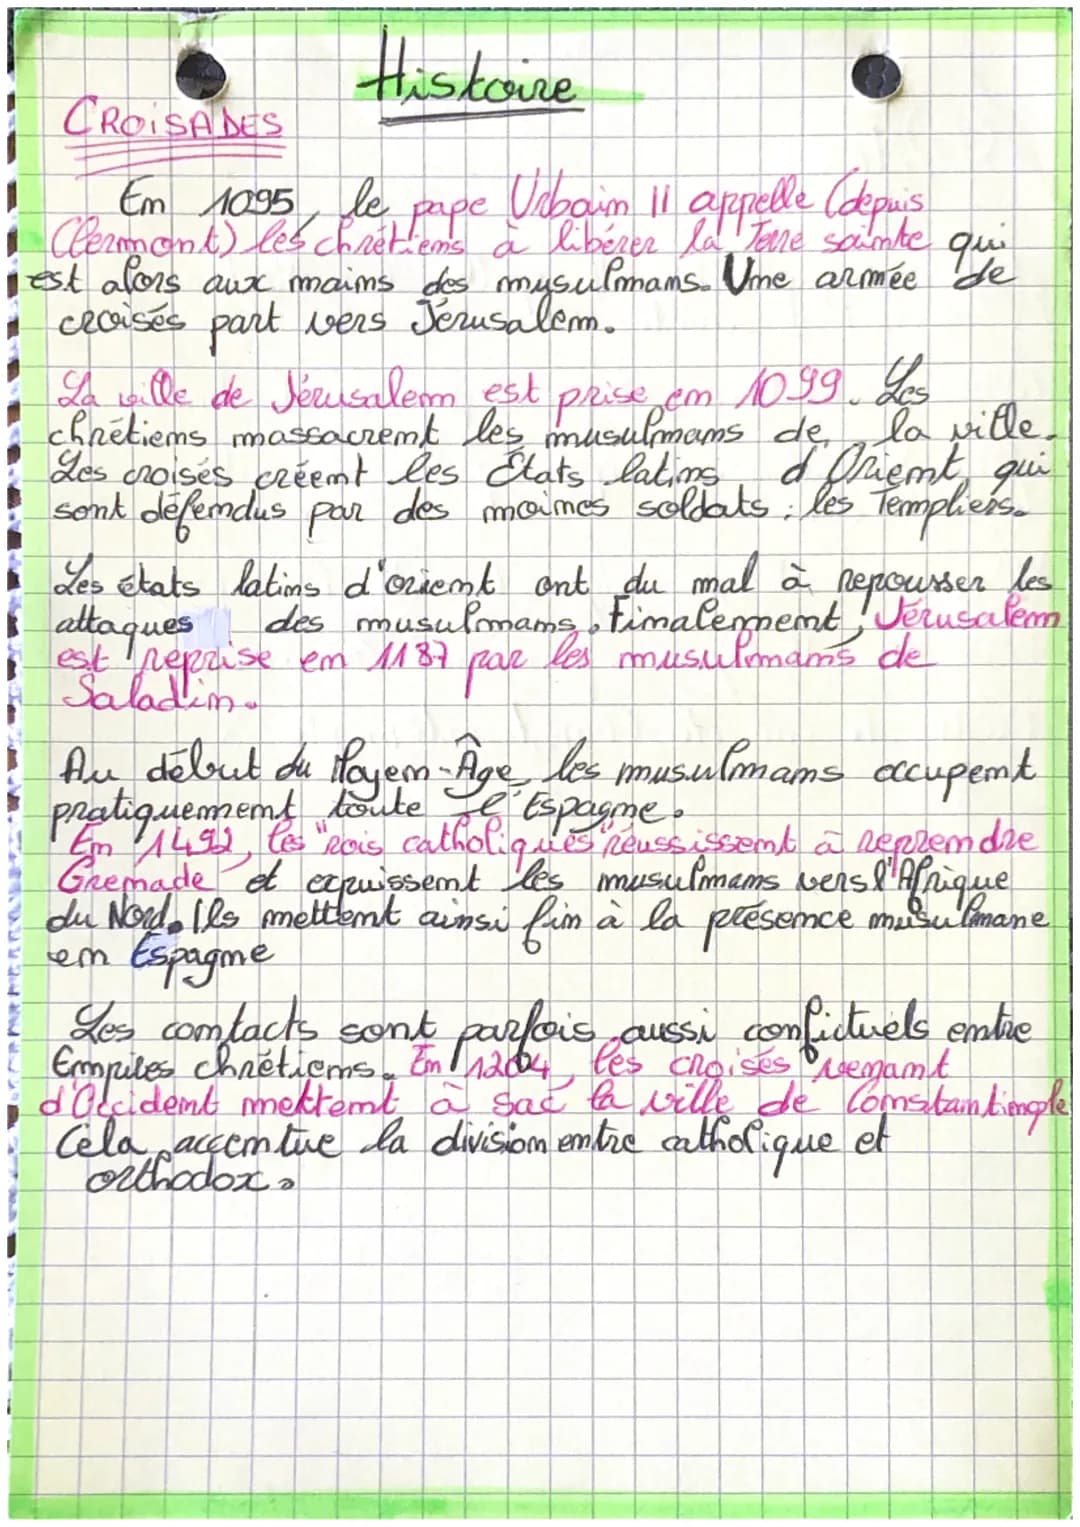 Histoire
CROiSADES
En 1095, le pape Urbain II appelle (depuis
Clermont) les chrétiens à libérer la Terre sainte qui
est alors aux mains des musulmans. Une armée de
croisés part vers Jérusalem.
La ville de Jérusalem est prise en 1099. Les
chrétiens massacrent les musulmans de la ville.
Les croisés créent les États latins d'Orient, qui
sont défendus par des moines soldats : les Templiers.
Les états latins d'orient ont du mal à repousser les
attaques des musulmans. Finalement, Jérusalem
est reprise en 1187 par les musulmans de
Saladin.
Au début du Moyen-Âge, les musulmans occupent
pratiquement toute l'Espagne.
En 1492, les "rois catholiques" réussissent à reprendre
Grenade et expuissent les musulmans vers l'Afrique
du Nord. Ils mettent ainsi fin à la présence musulmane
en Espagne
Les contacts sont parfois aussi confictuels entre
Empires chrétiens. En 1204, les croisés venant
d'Occident mettent à sac la ville de Constantinople
Cela accentue la division entre catholique et
orthodox.